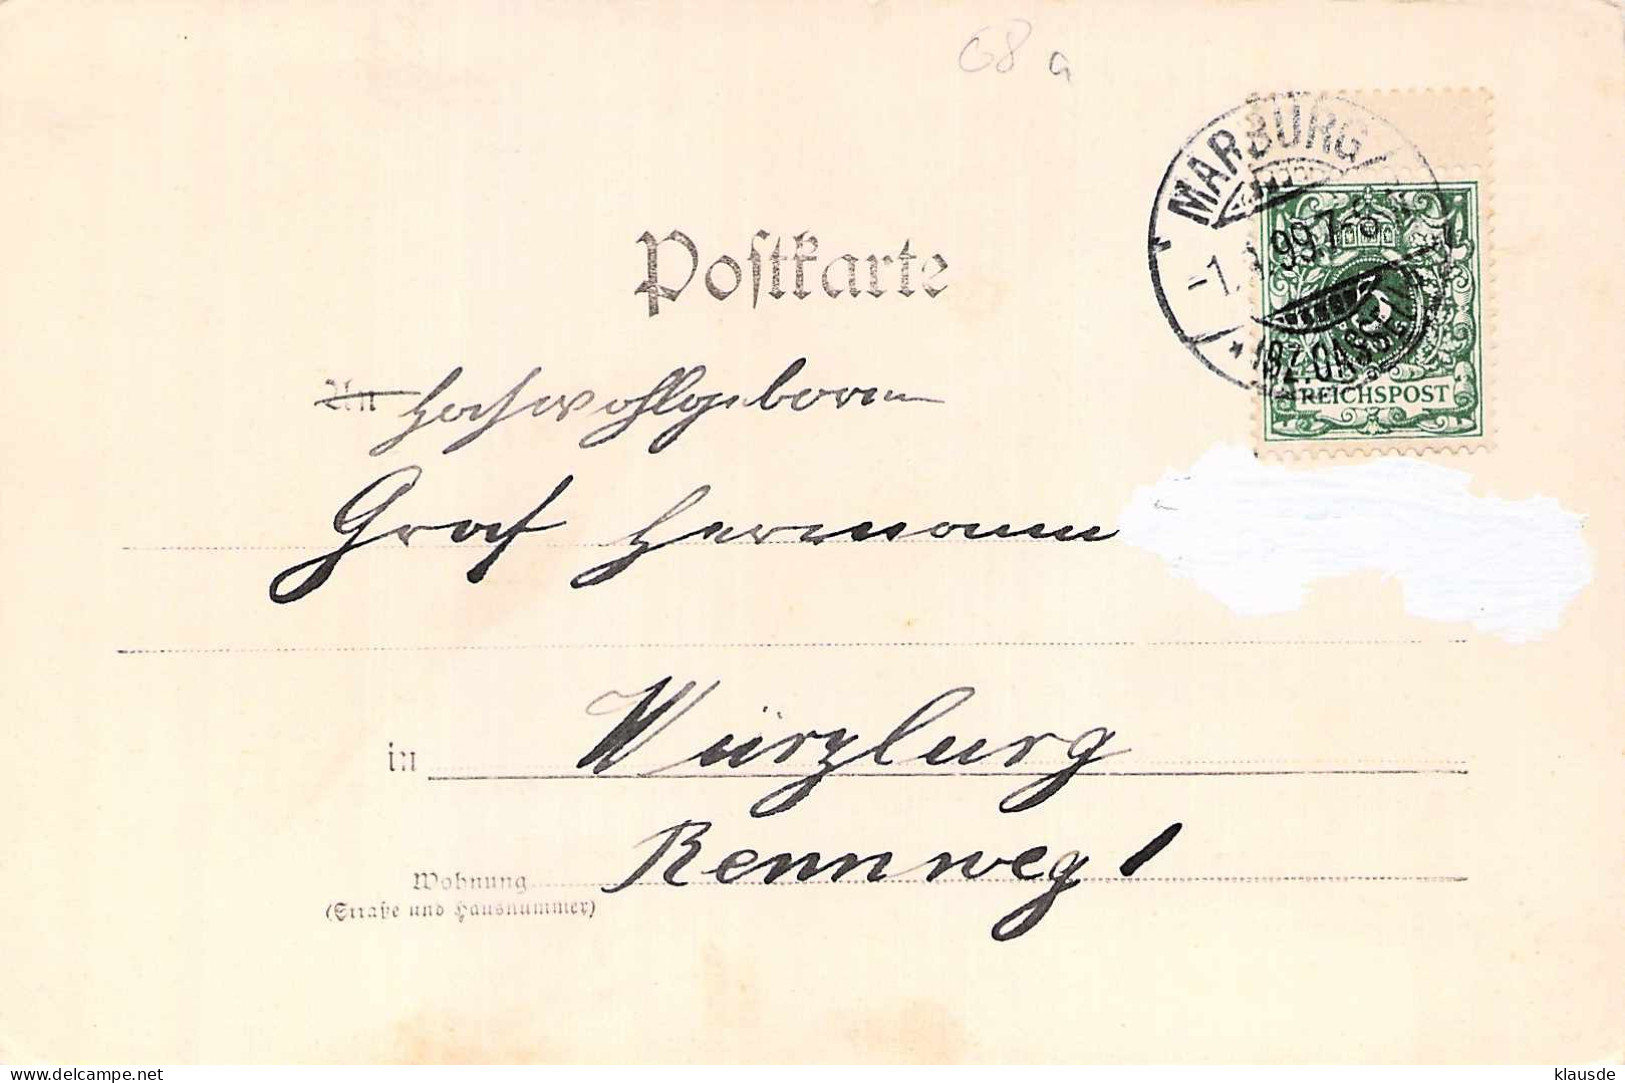 68 a
MARBURG
-1. 99. 7-8
* (BZ. CASSEL)
REICHSPOST
Postkarte
An Hochwohlgeboren
Graf Hermann
in Würzburg
Rennweg 1
Wohnung
(Straße und Hausnummer)
klausde
www.delcampe.net